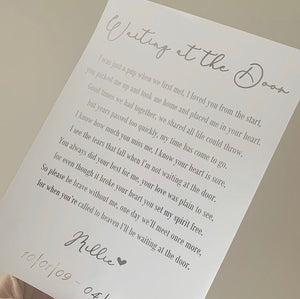 Waiting at the Door
I was just a pup when we first met, I loved you from the start,
you picked me up and took me home and placed me in your heart.
Good times we had together, we shared all life could throw,
but years passed too quickly, my time has come to go.
I know how much you miss me, I know your heart is sore,
I see the tears that fall when I'm not waiting at the door.
You always did your best for me, your love was plain to see,
for even though it broke your heart you set my spirit free.
So please be brave without me, one day we'll meet once more,
for when you're called to heaven I'll be waiting at the door.
Millie
10/01/09 - 04/